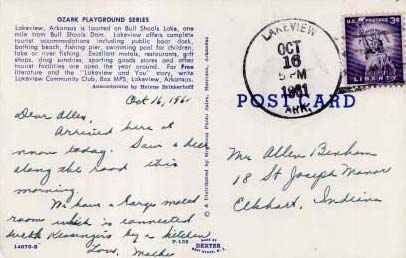 OZARK PLAYGROUND SERIES
Lakeview, Arkansas is located on Bull Shoals Lake, one
mile from Bull Shoals Dam. Lakeview offers complete
tourist accommodations including public boat dock,
bathing beach, fishing pier, swimming pool for children,
lake or river fishing. Excellent motels, restaurants, gift
shops, drug sundries, sporting goods stores and other
tourist facilities are open the year around. For Free
literature and the "Lakeview and You" story, write
Lakeview Community Club, Box MPS, Lakeview, Arkansas.
Anscochrome by Helene Brinkerhoff
Oct 16, 1961
Dear Allen,
Arrived here at
noon today. Saw a deer
along the road this
morning.
We have a large motel
room which is connected
with Kessingers by a kitchen
Love, Mother
14670-B
P-155
MADE BY
DEXTER
WEST NYACK, N. Y.
© & Distributed by Photo Sales, Harrison, Arkansas
LAKEVIEW
OCT
16
PM
1961
ARK.
3¢
LIBERTY
POST CARD
Mr Allen Benham
18 St Joseph Manor
Elkhart, Indiana